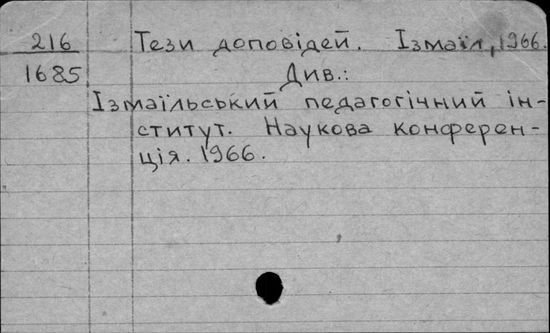 216 Тези доповідей. Ізмаїл, 1966.
1685 Див.:
Ізмаїльський педагогічний ін-
ститут. Наукова конферен-
ція. 1966.